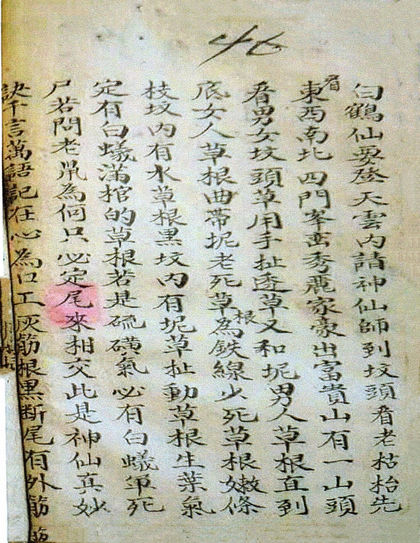 46
白鶴仙要登天雲內請神仙師到坟頭看老枯枱先
看東西南北四門峯峦秀麗家豪出富貴山有一山頭
看男女坟頭草用手扯透草又和坭男人草根直到
底女人草根曲帶坭老死草根為鉄線少死草根嫩條
枝坟內有水草根黑坟內有坭草扯動草根生葉氣
定有白蟻滿棺的草根若是硫磺氣必有白蟻死
尸若問老鼡為何只必定尾來相交此是神仙真妙
訣千言萬語記在心為口工灰筋根黑断尾有外筋